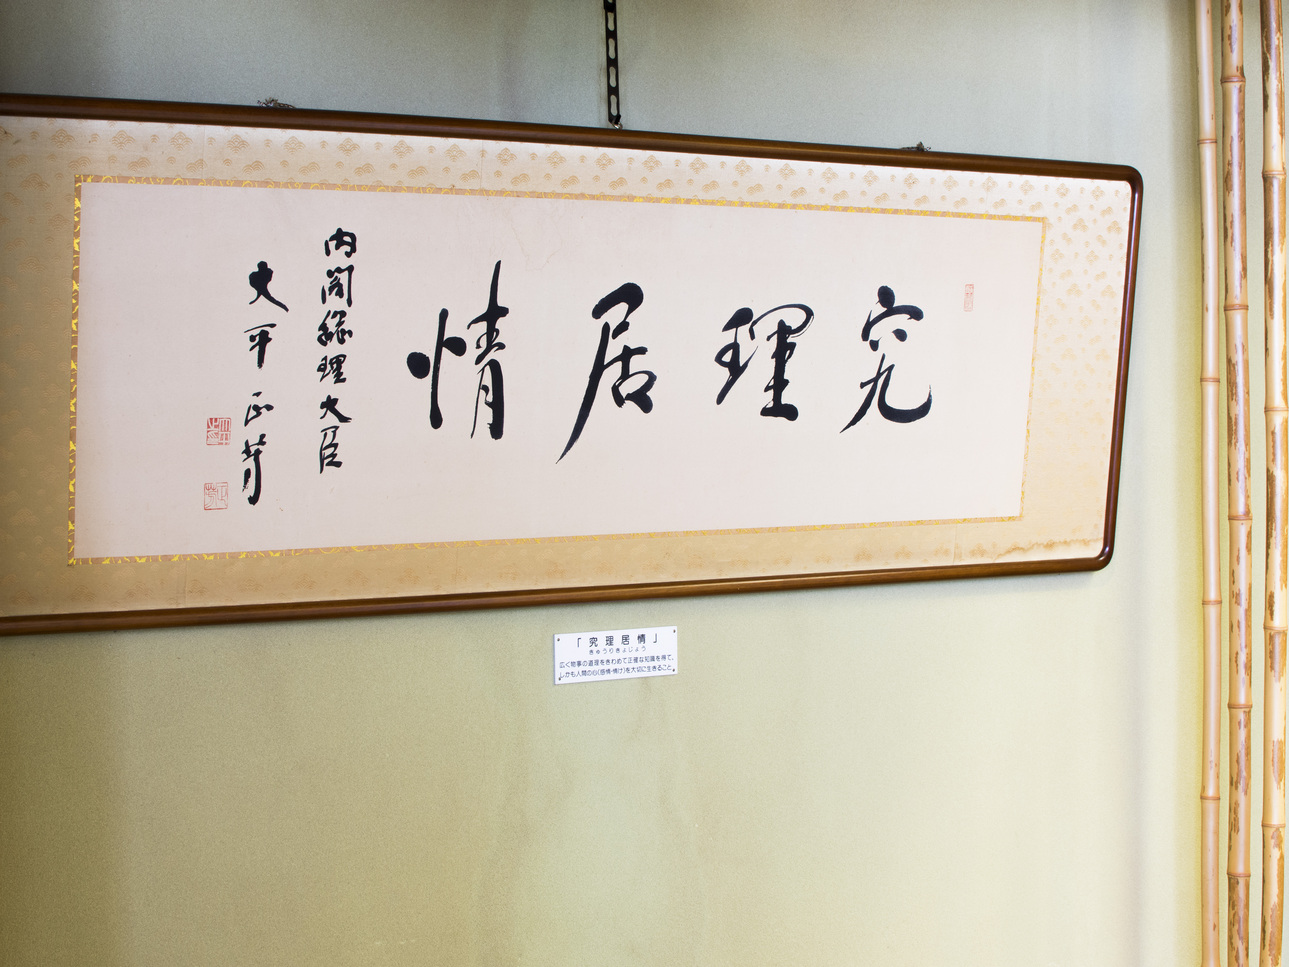 究理居情
内閣総理大臣
大平正芳
「究理居情」
きゅうりきょじょう
広く物事の道理をきわめて正確な知識を得て、
しかも人間の心(感情・情け)を大切に生きること。